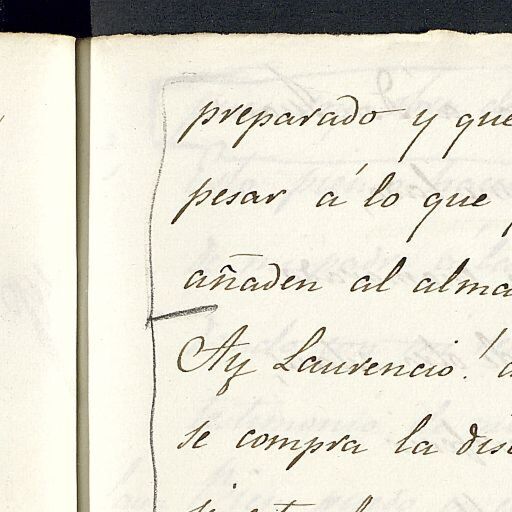 preparado y que
pesar á lo que
añaden al alma
Ay Laurencio!
se compra la